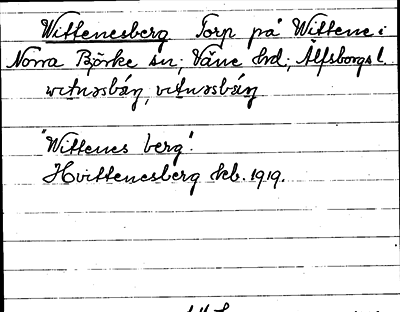 Wittenesberg Torp på Wittene i
Norra Björke sn; Väne hrd; Älfsborgs l.
witnəsbäŋ, vitnəsbäŋ
"Wittenes berg".
Hvittenesberg kb. 1919.